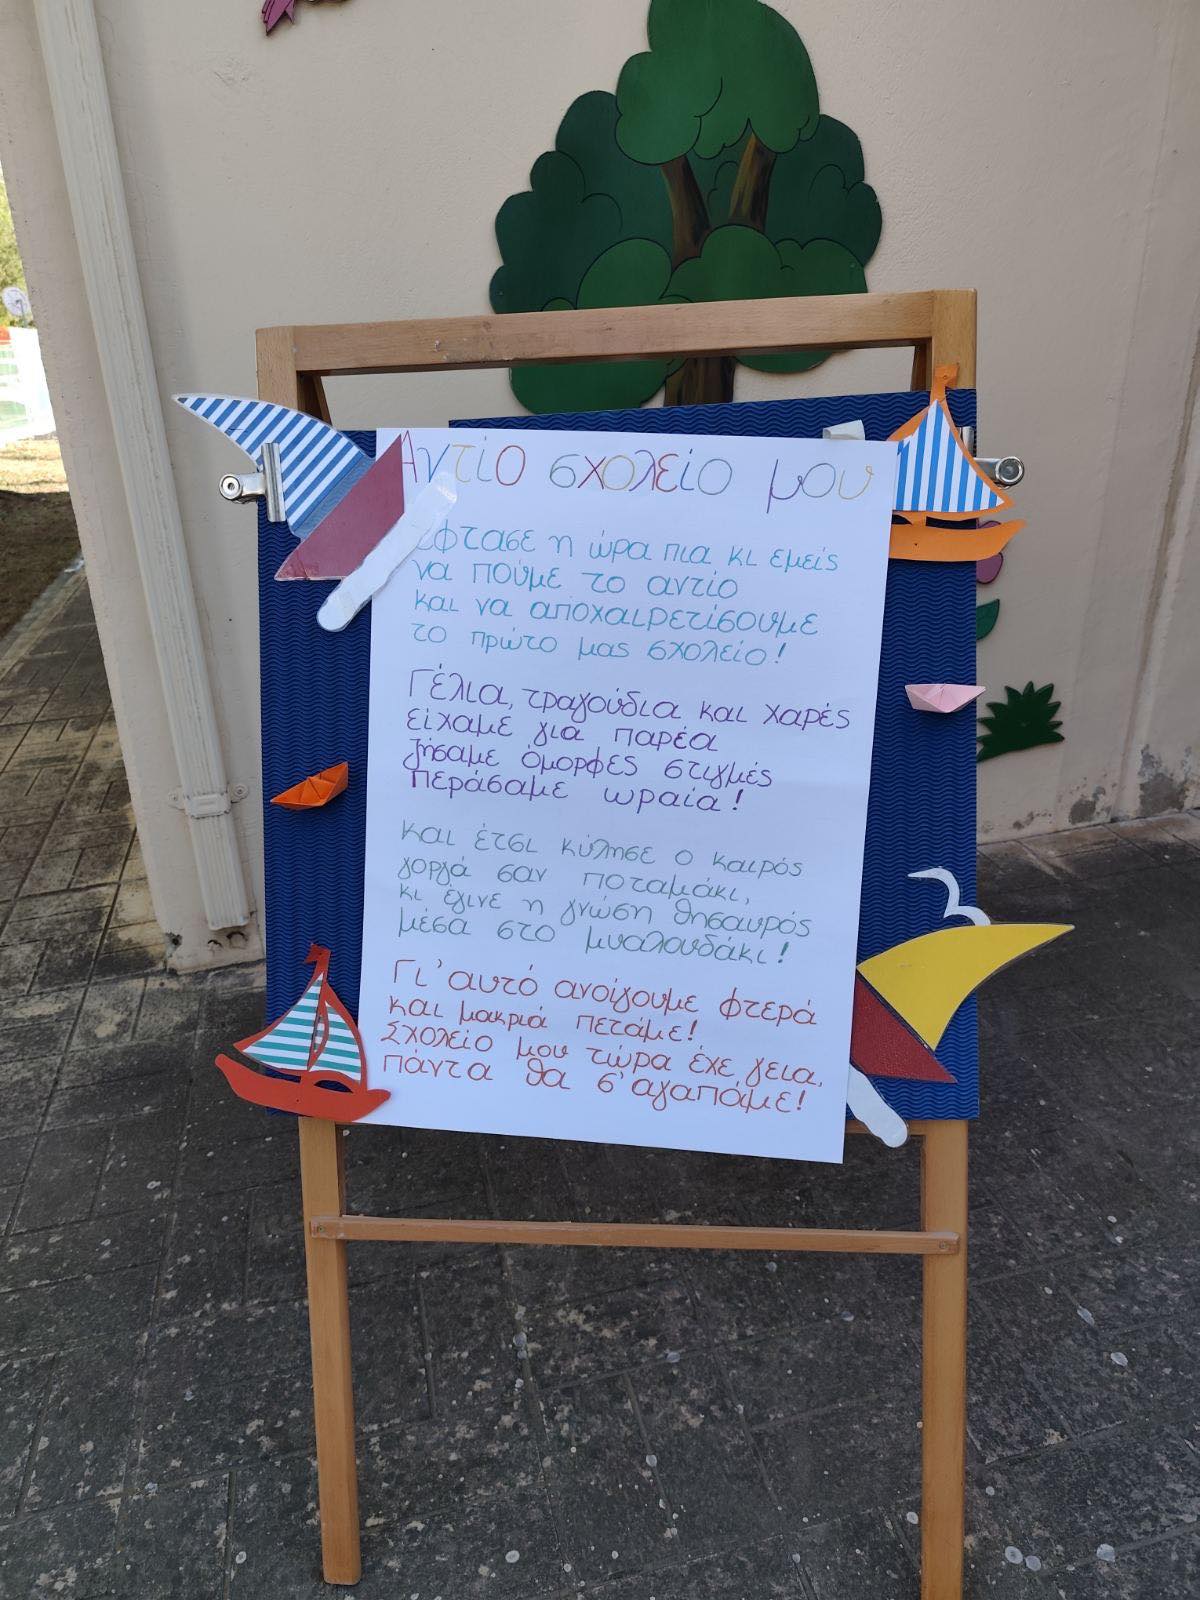 Αντίο σχολείο μου
έφτασε η ώρα πια κι εμείς
να πούμε το αντίο
και να αποχαιρετίσουμε
το πρώτο μας σχολείο!
Γέλια, τραγούδια και χαρές
είχαμε για παρέα
ζήσαμε όμορφες στιγμές
περάσαμε ωραία!
και έτσι κύλησε ο καιρός
γοργά σαν ποταμάκι,
κι έγινε η γνώση θησαυρός
μέσα στο μυαλουδάκι!
Γι' αυτό ανοίγουμε φτερά
και μακριά πετάμε!
Σχολείο μου τώρα έχε γεια,
πάντα θα σ'αγαπάμε!